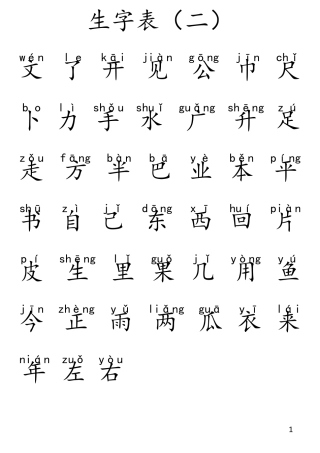 生字表（二）
wén le kāi jiàn gōng jīn chǐ
文 了 开 见 公 巾 尺
bo lì shǒu shuǐ guǎng shēng zú
卜 力 手 水 广 升 足
zǒu fāng bàn bā yè běn píng
走 方 半 巴 业 本 平
shū zì jǐ dōng xī huí piàn
书 自 己 东 西 回 片
pí shēng lǐ guǒ jǐ yòng yú
皮 生 里 果 几 用 鱼
jīn zhèng yǔ liǎng guā yī lái
今 正 雨 两 瓜 衣 来
nián zuǒ yòu
年 左 右
1